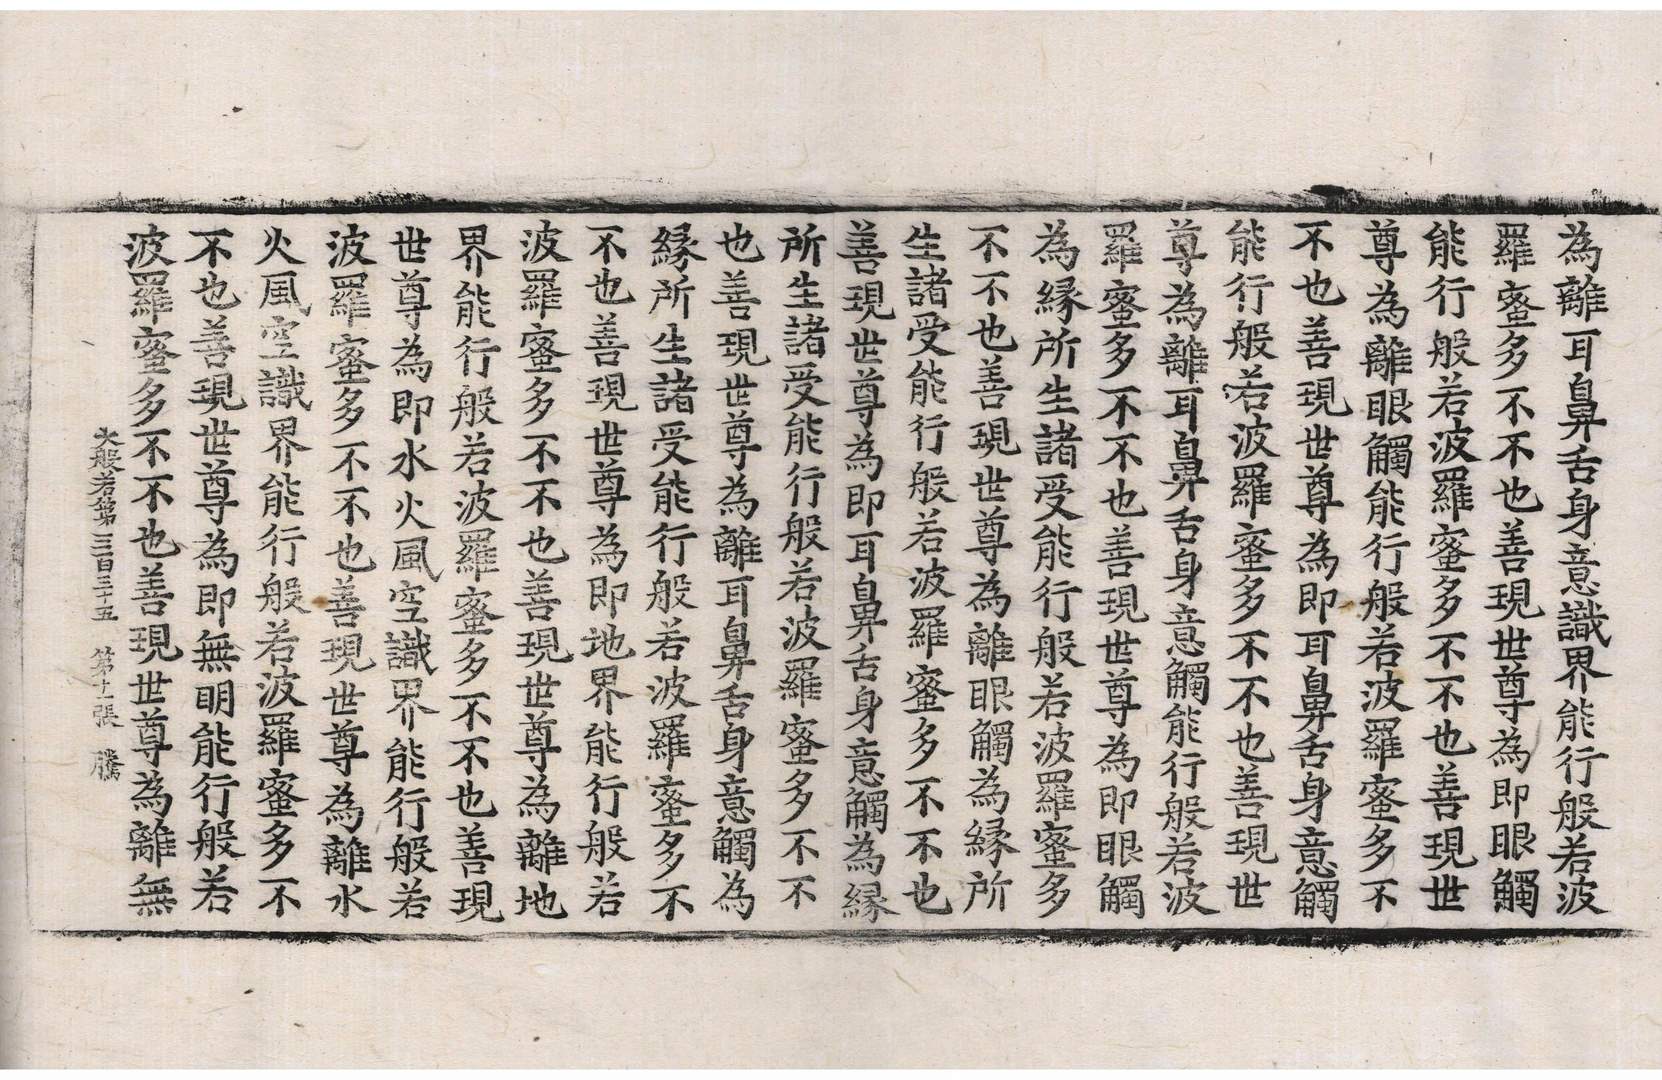 為離耳鼻舌身意識界能行般若波
羅蜜多不不也善現世尊為即眼觸
能行般若波羅蜜多不不也善現世
尊為離眼觸能行般若波羅蜜多不
不也善現世尊為即耳鼻舌身意觸
能行般若波羅蜜多不不也善現世
尊為離耳鼻舌身意觸能行般若波
羅蜜多不不也善現世尊為即眼觸
為緣所生諸受能行般若波羅蜜多
不不也善現世尊為離眼觸為緣所
生諸受能行般若波羅蜜多不不也
善現世尊為即耳鼻舌身意觸為緣
所生諸受能行般若波羅蜜多不不
也善現世尊為離耳鼻舌身意觸為
緣所生諸受能行般若波羅蜜多不
不也善現世尊為即地界能行般若
波羅蜜多不不也善現世尊為離地
界能行般若波羅蜜多不不也善現
世尊為即水火風空識界能行般若
波羅蜜多不不也善現世尊為離水
火風空識界能行般若波羅蜜多不
不也善現世尊為即無明能行般若
波羅蜜多不不也善現世尊為離無
大般若第三百三十五 第十一張 騰